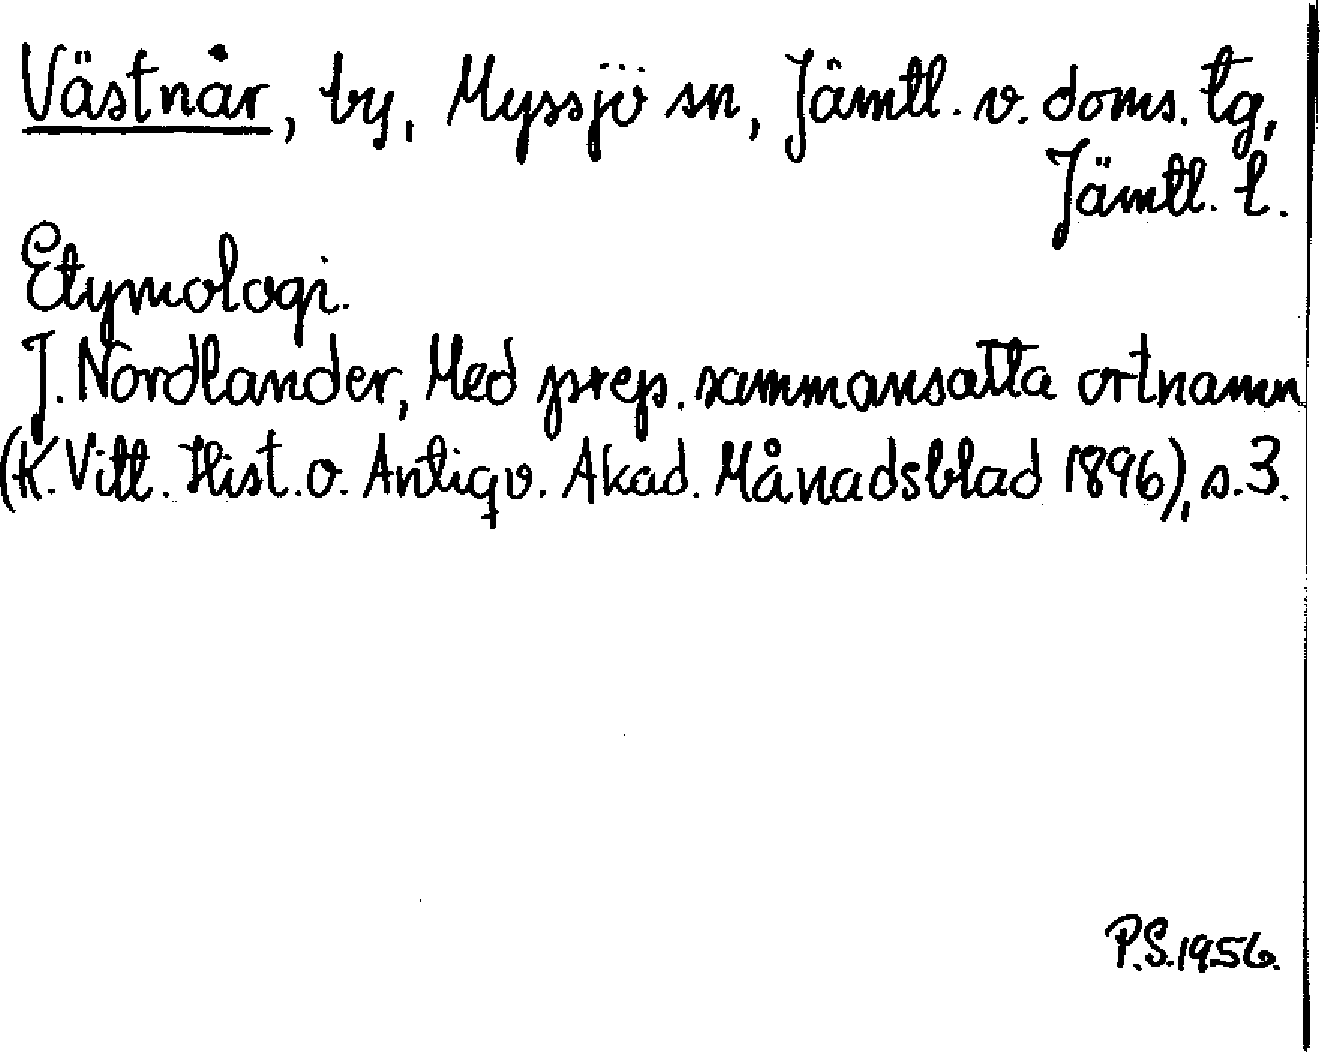 Västnår, by, Myssjö sn, Jämtl. v. doms. tg,
Jämtl. l.
Etymologi.
J. Nordlander, Med prep. sammansatta ortnamn
(K. Vitt. Hist. o. Antiqv. Akad. Månadsblad 1896), s. 3.
P.S. 1956.